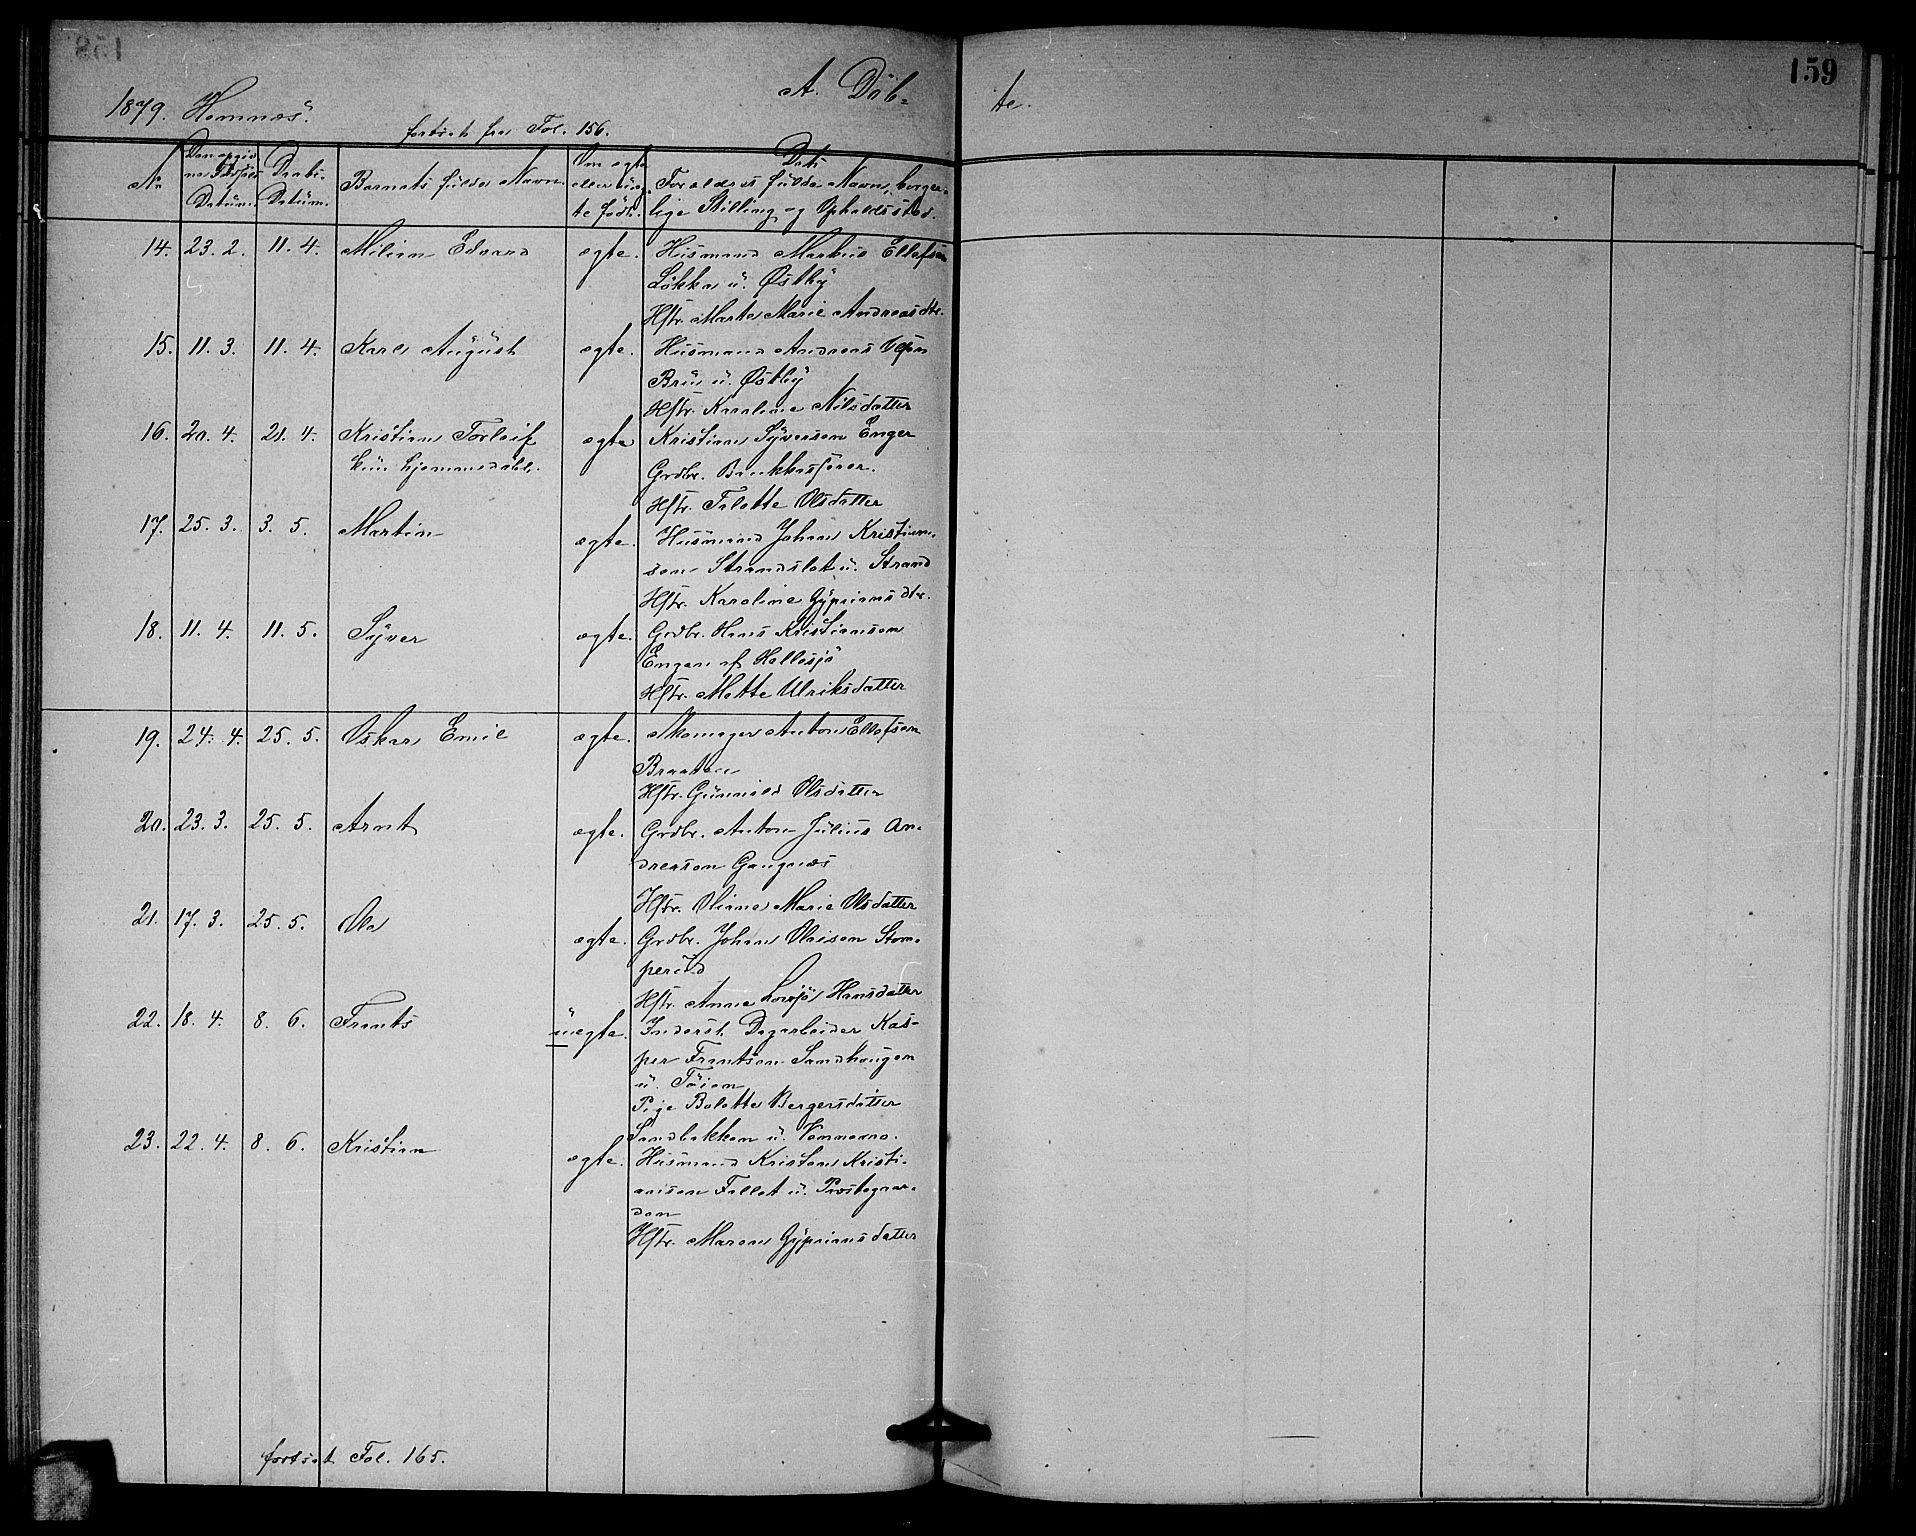 159
1879. Hemnæs. A. Döb= te.
fortsat fra Fol. 156.
No Den opgivne Fødsels Datum. Daabs Datum. Barnets fulde Navn. Om ægte eller uægte født. Dets Forældres fulde Navn, borgerlige Stilling og Opholdssted.
14. 23. 2. 11. 4. Milian Edvard ægte. Husmand Markus Ellefsen
Løkka u. Østby
Hstr. Marte Marie Andreasdtr.
15. 11. 3. 11. 4. Karl August ægte. Husmand Andreas Olsen
Bru u. Østby
Hstr. Karoline Nilsdatter
16. 20. 4. 21. 4. Kristian Torleif ægte Kristian Syversen Enger
kun hjemmedøbt. Grdbr. Bankkasserer.
Hstr. Tilette Olsdatter
17. 25. 3. 3. 5. Martin ægte. Husmand Johan Kristian-
sen Strandslet u. Strand
Hstr. Karoline Gyprians dtr.
18. 11. 4. 11. 5. Syver ægte. Grdbr. Hans Kristiansen
Engen af Hallesjö
Hstr. Mette Ulriksdatter
19. 24. 4. 25. 5. Oskar Emil ægte. Skomager Anton Ellefsen
Braaten
Hstr. Gunnild Olsdatter
20. 23. 3. 25. 5. Arnt ægte. Grdbr. Anton Julius An-
dreasen Gangnæs
Hstr. Oliane Marie Olsdatter
21. 17. 3. 25. 5. Ole ægte. Grdbr. Johan Olaisen Stom-
perud
Hstr. Anne Lovisa Hansdatter
22. 18. 4. 8. 6. Frants uægte. Inderst Dagarbeider Kas-
per Frantsen Sandhaugen
u. Töien
Pige Bolette Bergersdatter
Sandbakken u. Vennevno.
23. 22. 4. 8. 6. Kristian ægte. Husmand Kristen Kristi-
ansen Fallet u. Prestegaar-
den
Hstr. Maren Gypriansdatter
fortsat Fol. 165.